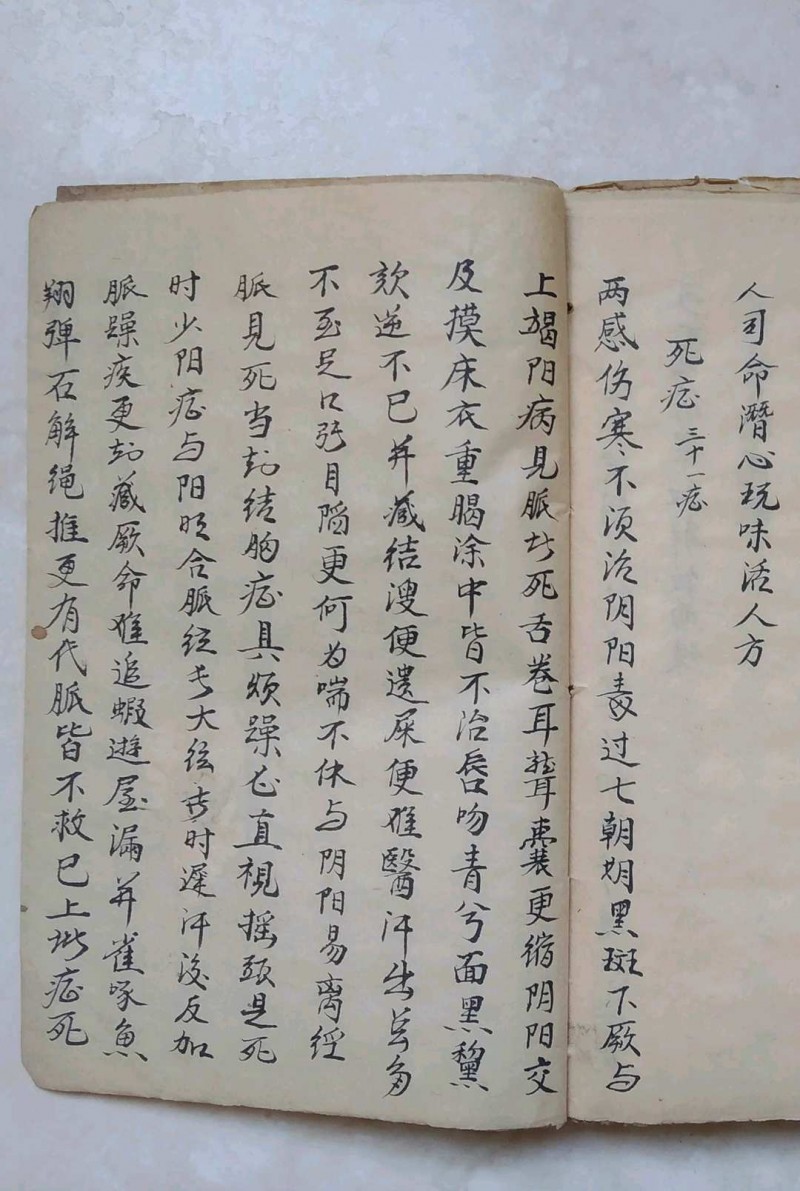 人司命潛心玩味活人方
死症 三十一症
两感伤寒不须治阴阳毒过七朝期黑斑下厥与
上竭阳病见脈皆死舌卷耳聋囊更缩阴阳交
及摸床衣重腸涂中皆不治唇吻青兮面黑黧
欬逆不已并藏结溲便遗屎便难醫汗出虽多
不至足口張目陷更何为喘不休与阴阳易离經
脈見死当刼结胸症具烦躁亡直視摇頭是死
时少阳症与阳明合脈弦长大弦者时遲汗後反加
脈躁疾更刼藏厥命难追蝦遊屋漏并雀啄魚
翔弹石解绳推更有代脈皆不救已上此症死